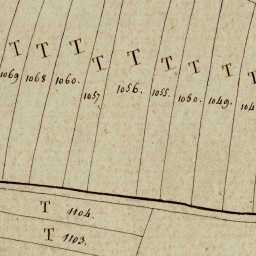 T T T T T T T T T
1069 1068 1060. 1057 1056. 1055. 1050. 1049. 104
T 1104.
T 1103.